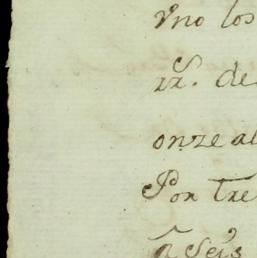 vno los
rr.s de
onze al
Por tre
a Seis